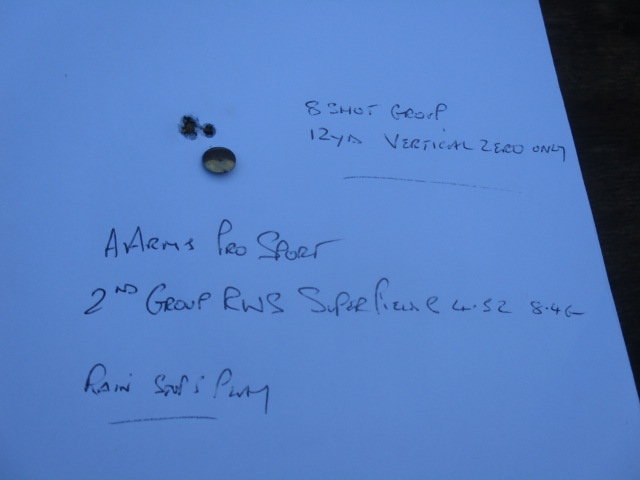 8 SHOT GROUP
12YD VERTICAL ZERO ONLY
AIRARMS PRO SPORT
2ND GROUP RWS SUPERFIELD 4.52 8.4G
RAIN STOPS PLAY